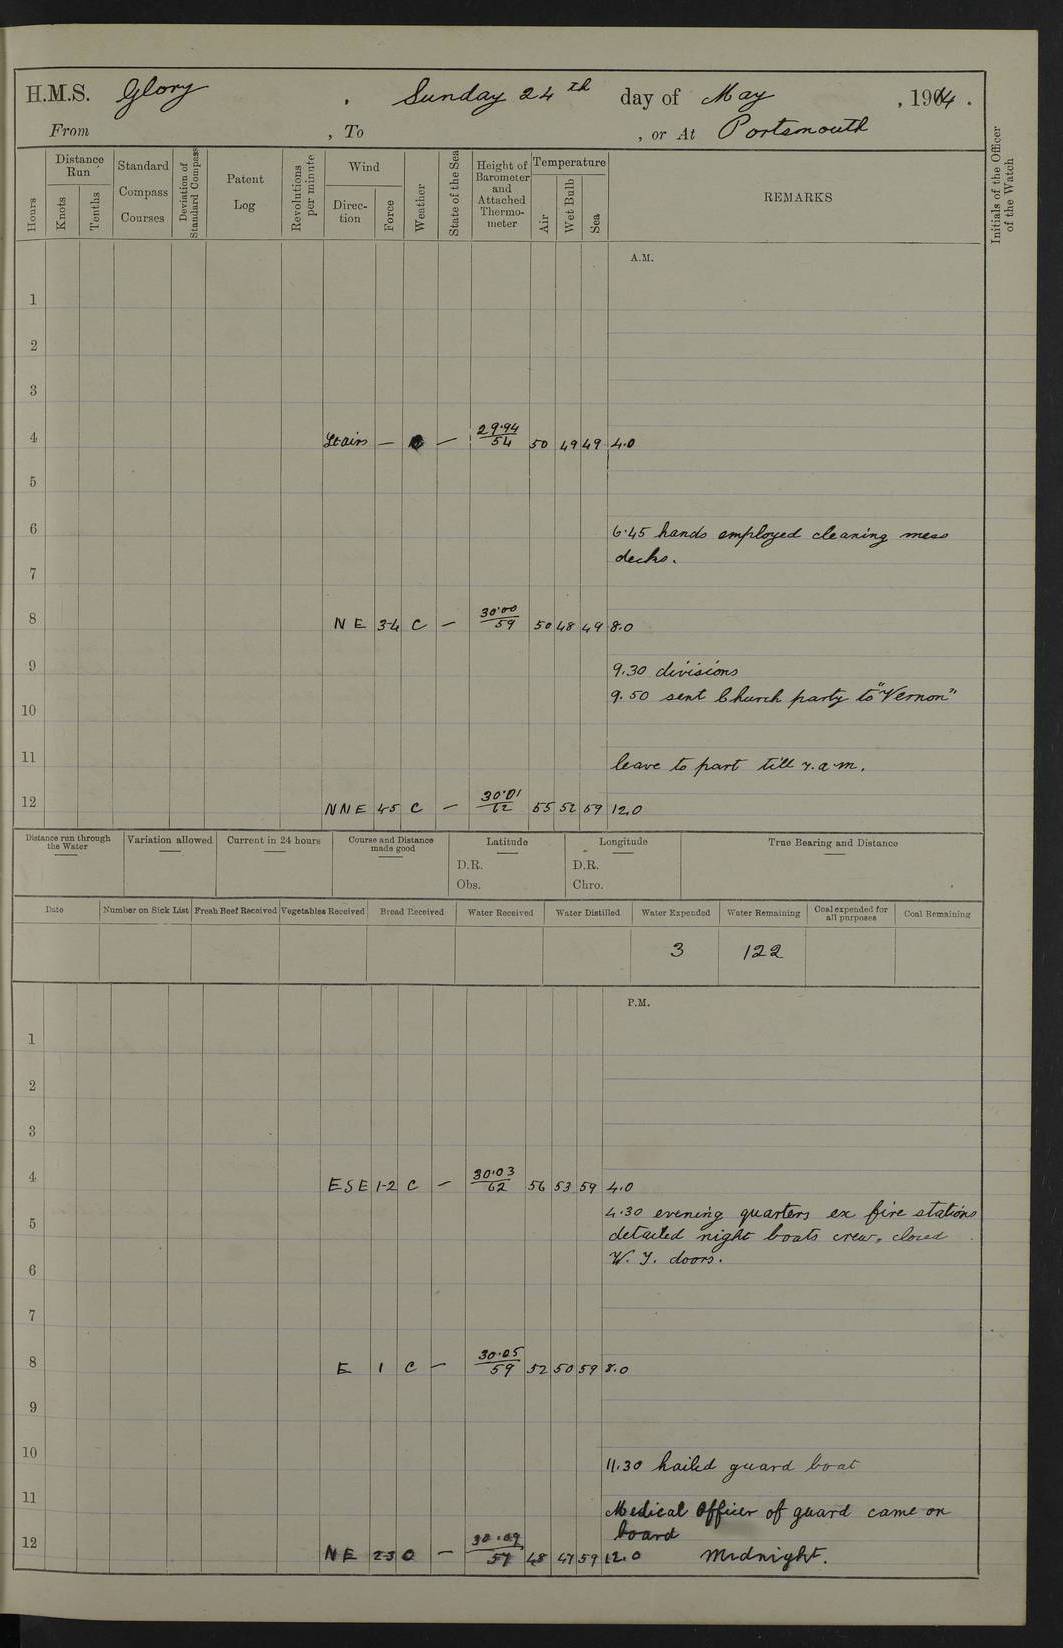 H.M.S. Glory , Sunday 24th day of May , 1914 .
From , To , or At Portsmouth
Hours
Distance Run
Knots
Tenths
Standard Compass Courses
Deviation of Standard Compass
Patent Log
Revolutions per minute
Wind
Direction
Force
Weather
State of the Sea
Height of Barometer and Attached Thermometer
Temperature
Air
Wet Bulb
Sea
REMARKS
Initials of the Officer of the Watch
A.M.
1
2
3
4 — — 29.94/54 50 49 49 4.0
5
6 6.45 hands employed cleaning mess
decks.
7
8 NE 3-4 C — 30.00/59 50 48 49 8.0
9 9.30 divisions
9.50 sent Church party to "Vernon"
10
11 leave to part till 7.a.m.
12 NNE 4-5 C — 30.01/62 55 52 59 12.0
Distance run through the Water
Variation allowed
Current in 24 hours
Course and Distance made good
Latitude
D.R.
Obs.
Longitude
D.R.
Chro.
True Bearing and Distance
Date
Number on Sick List
Fresh Beef Received
Vegetables Received
Bread Received
Water Received
Water Distilled
Water Expended
Water Remaining
Coal expended for all purposes
Coal Remaining
3 122
P.M.
1
2
3
4 ESE 1-2 C — 30.03/62 56 53 59 4.0
4.30 evening quarters ex fire stations
5 detailed night boats crew, closed
W. T. doors.
6
7
8 E 1 C — 30.05/59 52 50 59 8.0
9
10 11.30 hailed guard boat
11 Medical Officer of guard came on
board
12 NE 2-3 O — 30.09/57 48 47 59 12.0 Midnight.